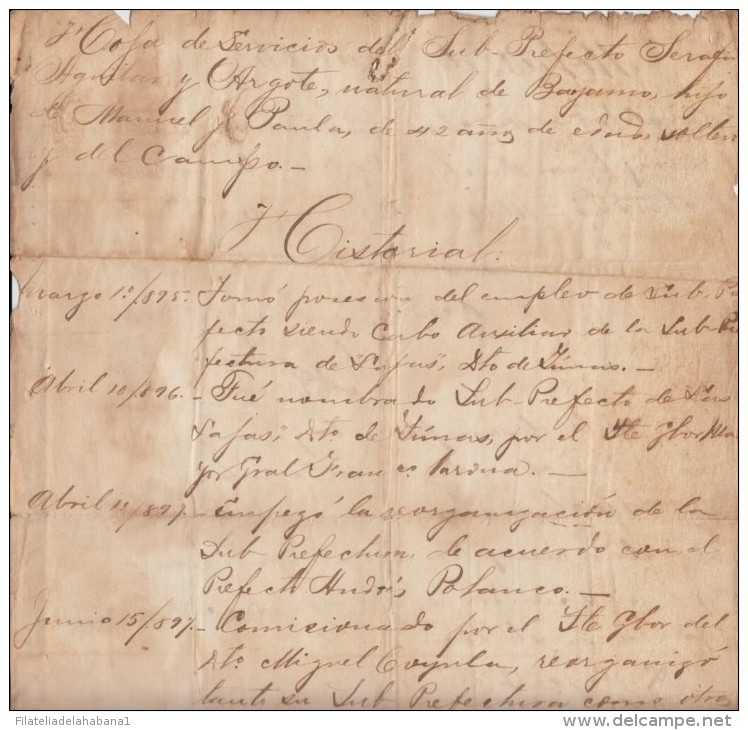 Hoja de Servicios del Sub-Prefecto Serafin
Aguilar y Argote, natural de Bayamo, hijo
de Manuel y Paula, de 42 años de edad, solter
y del Campo.-
Historial.
Marzo 1º/895. Tomó posesion del empleo de Sub-Pre
fecto siendo Cabo Auxiliar de la Sub-Pre
fectura de "Lajas", Dto de Túnas.-
Abril 10/896.- Fué nombrado Sub-Prefecto de "Las
Lajas", Dto de Túnas, por el Tte Gbor Ma
yor Gral Franco. Varona.-
Abril 1º/897.- Empezó la reorganización de la
Sub-Prefectura, de acuerdo con el
Prefecto Andrés Polanco.-
Junio 15/897.- Comisionado por el Tte Gbor del
Dto Miguel Coyula, reorganizó
tanto su Sub Prefectura como otras
Filateliadelahabana1
delcampe.net